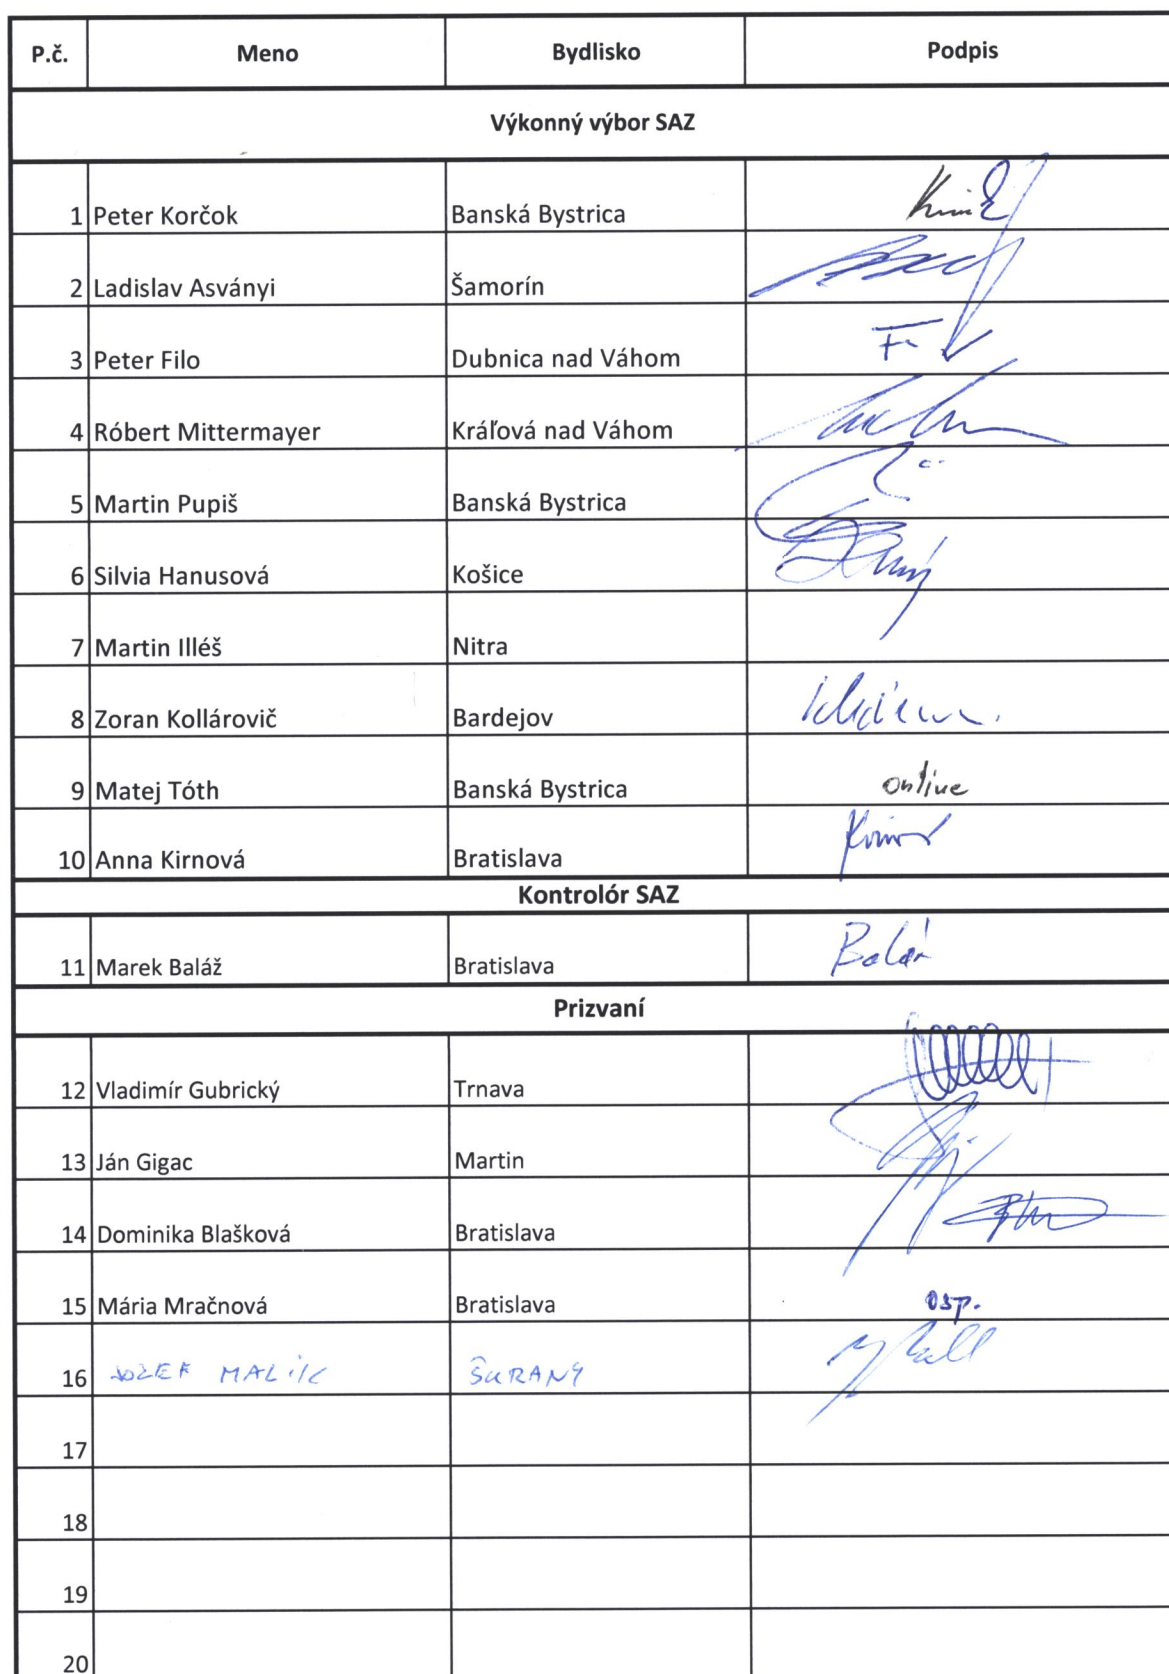 P.č. Meno Bydlisko Podpis
Výkonný výbor SAZ
1 Peter Korčok Banská Bystrica
2 Ladislav Asványi Šamorín
3 Peter Filo Dubnica nad Váhom
4 Róbert Mittermayer Kráľová nad Váhom
5 Martin Pupiš Banská Bystrica
6 Silvia Hanusová Košice
7 Martin Illéš Nitra
8 Zoran Kollárovič Bardejov
9 Matej Tóth Banská Bystrica online
10 Anna Kirnová Bratislava
Kontrolór SAZ
11 Marek Baláž Bratislava Baláž
Prizvaní
12 Vladimír Gubrický Trnava
13 Ján Gigac Martin
14 Dominika Blašková Bratislava
15 Mária Mračnová Bratislava osp.
16 JOZEF MALÍK ŠURANY
17
18
19
20